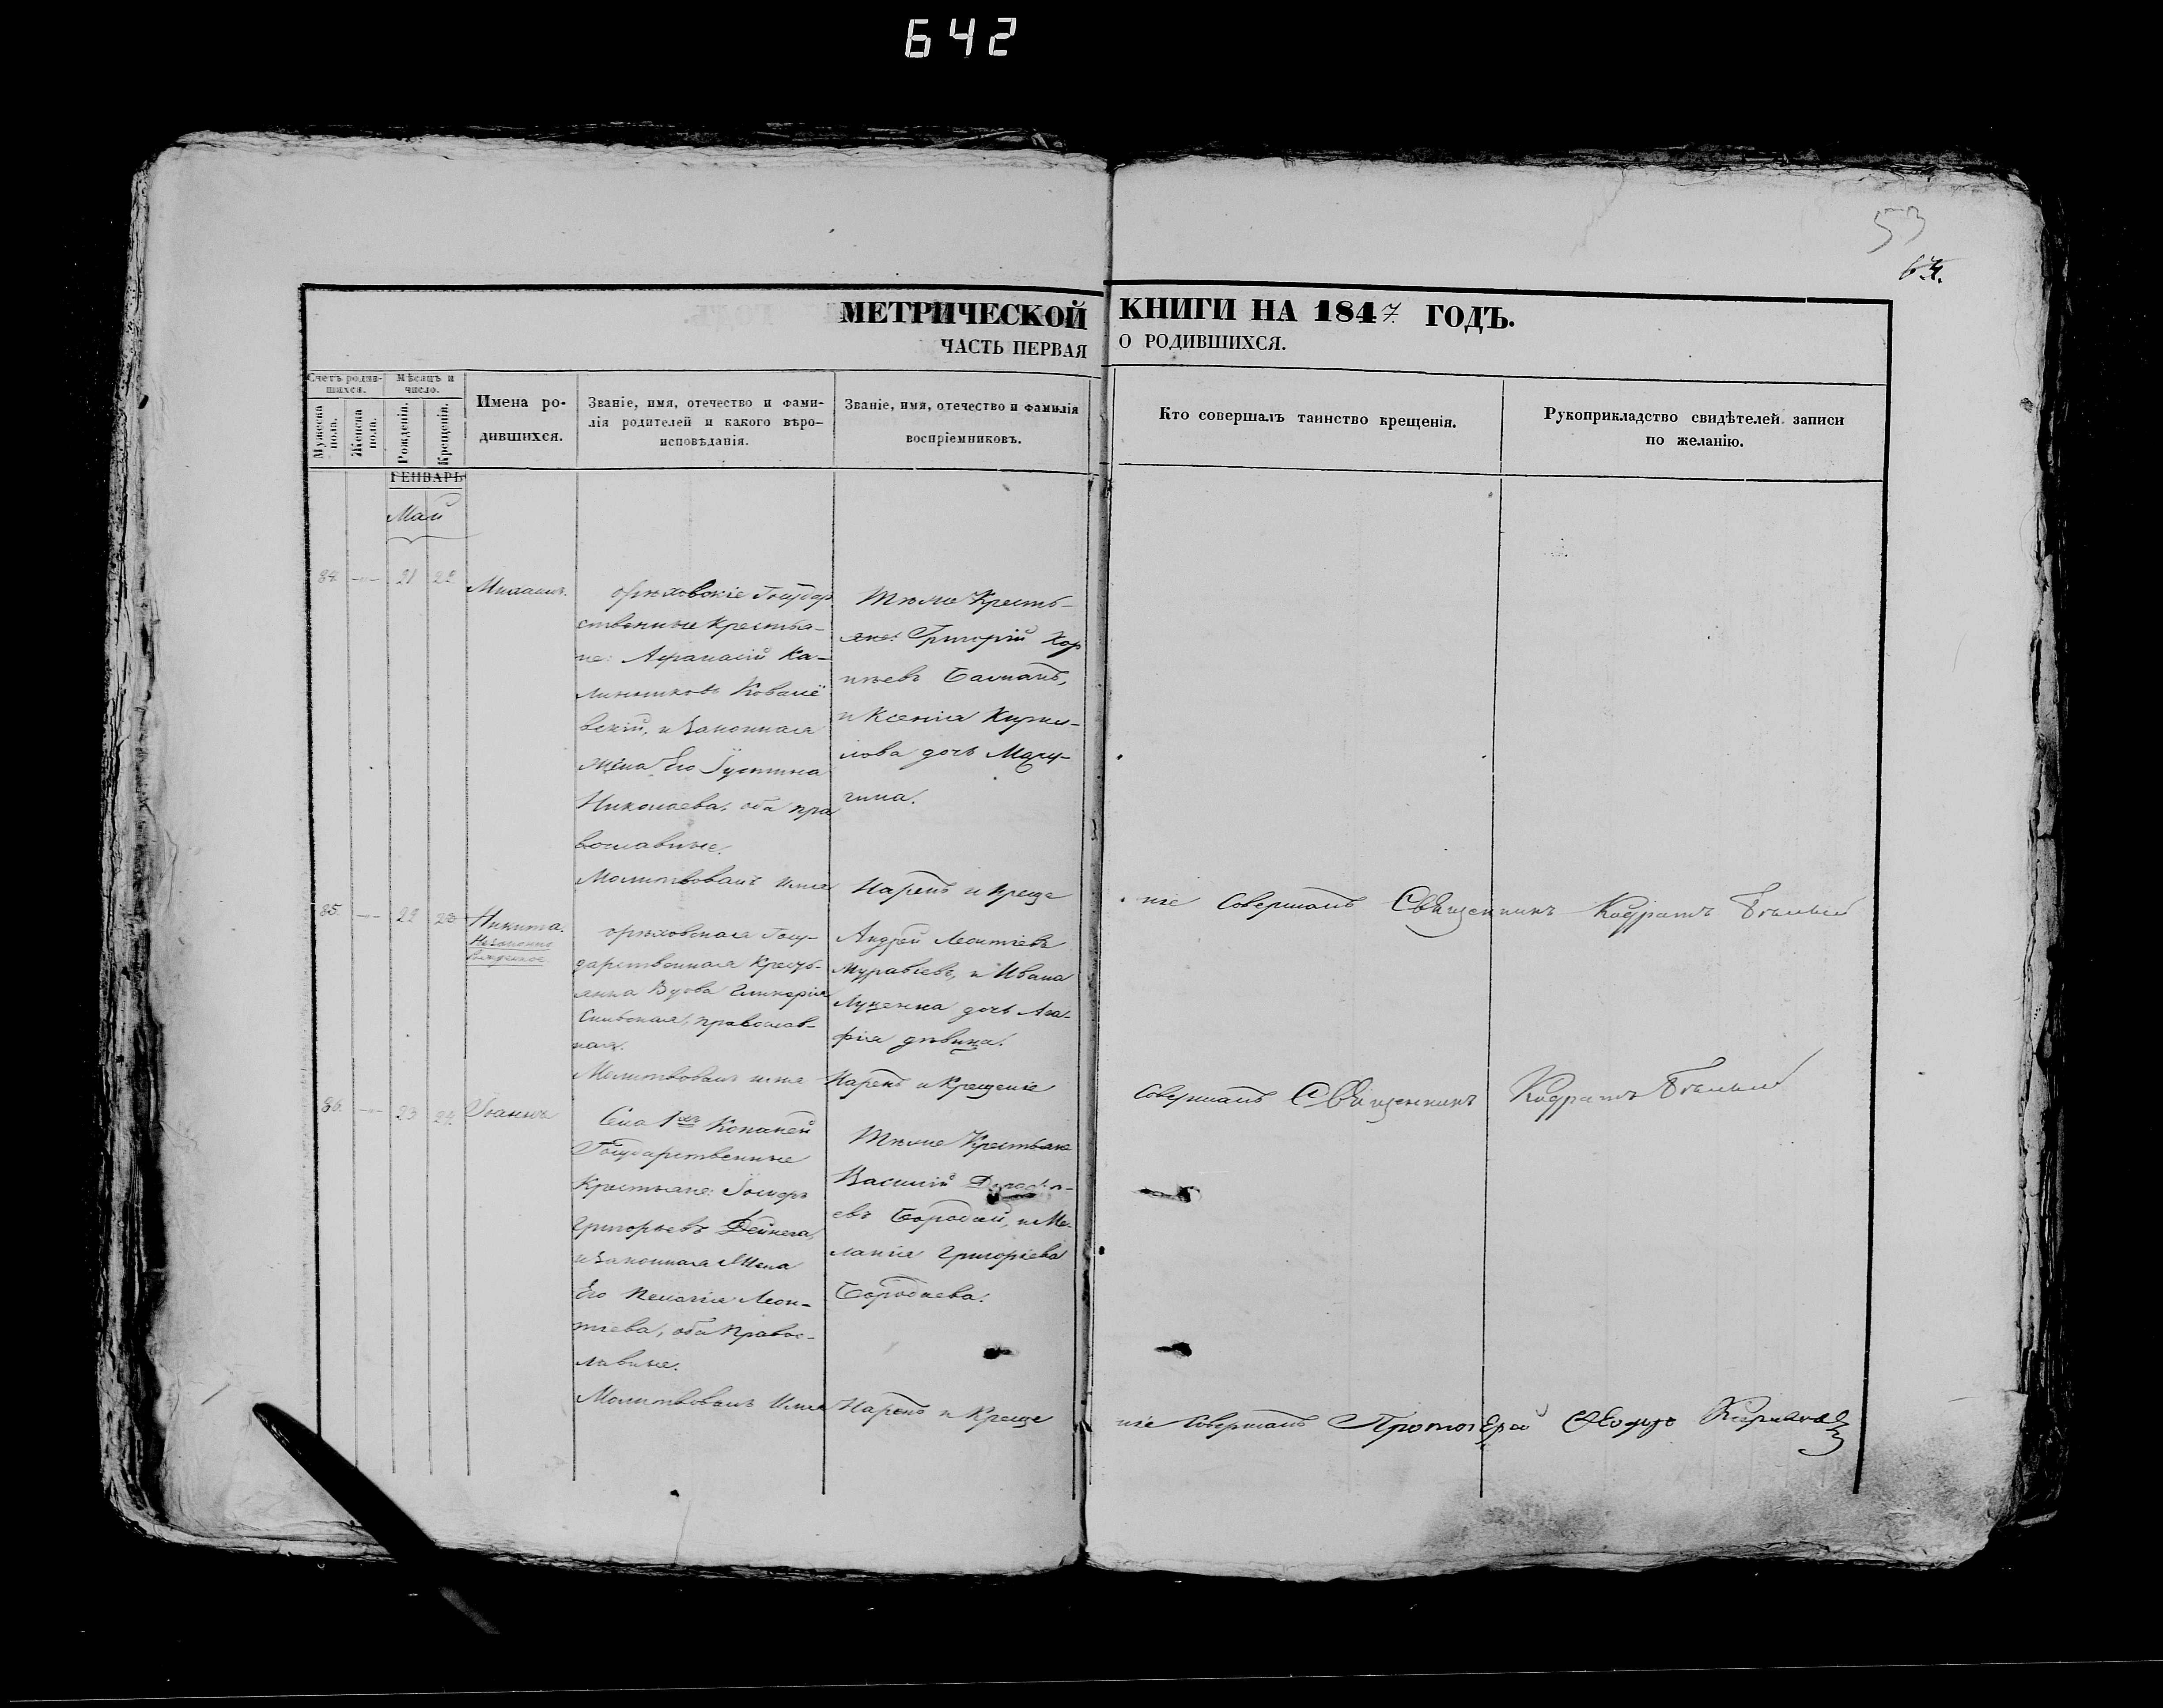 642
53
64.
МЕТРИЧЕСКОЙ КНИГИ НА 1847 ГОДЪ.
ЧАСТЬ ПЕРВАЯ О РОДИВШИХСЯ.
Счетъ родив-
шихся.
Мѣсяцъ и
число.
Мужеска
пола.
Женска
пола.
Рожденія.
Крещенія.
Имена ро-
дившихся.
Званіе, имя, отечество и фами-
лія родителей и какого вѣро-
исповѣданія.
Званіе, имя, отечество и фамилія
воспріемниковъ.
Кто совершалъ таинство крещенія.
Рукоприкладство свидѣтелей записи
по желанію.
ГЕНВАРЬ
Май
84. 21 22
Михаилъ.
орѣховскіе Государ
ственные крестья-
не: Афанасій Ка-
линниковъ Ковалѣ
вскій, и законная
жена Его Іустина
Николаева, оба пра
вославные.
Молитвовалъ имя
Тѣже Кресть-
яне: Григорій Кор
нѣевъ
и Ксенія Кирил-
лова дочь
Нареч и креще
ніе совершалъ Священникъ Кодратъ Бѣлый
85. 22 23
Никита.
Незаконно
рожденное.
орѣховская Госу-
дарственная Кресть-
янка Вдова Гликерія
православ-
ная.
Молитвовалъ имя
Андрей Леонтіевъ
Муравьевъ, и Ивана
Луценка дочь Ага-
фія дѣвица.
Нареч и крещеніе
совершалъ Священникъ Кодратъ Бѣлый
86. 23 24
Іоаннъ
Села 1хъ Копаней
Государственные
Крестьяне: Іосифъ
Григорьевъ Дейнега,
и законная жена
Его Пелагія Леон-
тіева, оба Правос-
лавные.
Молитвовалъ Имя
Тѣже Крестьяне
Василій
евъ Бородай, и Ме-
ланія Григоріева
Бородаева.
Нареч и Креще
ніе совершалъ Протоіерей